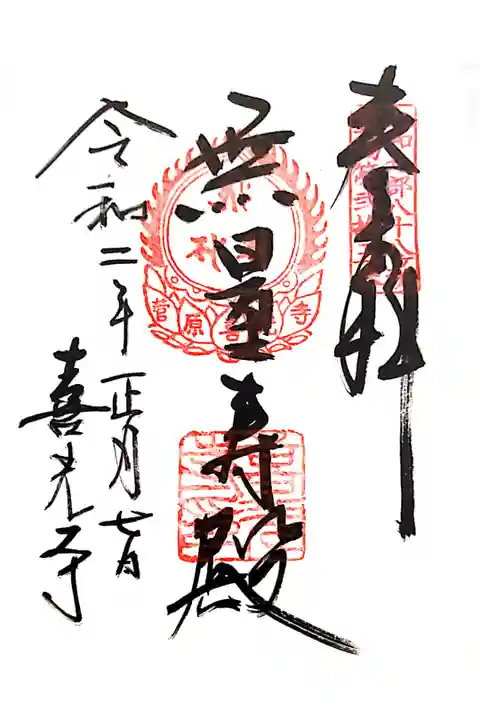 奉拝
無量寿殿
令和二年正月七日
喜光寺
菅原喜光寺